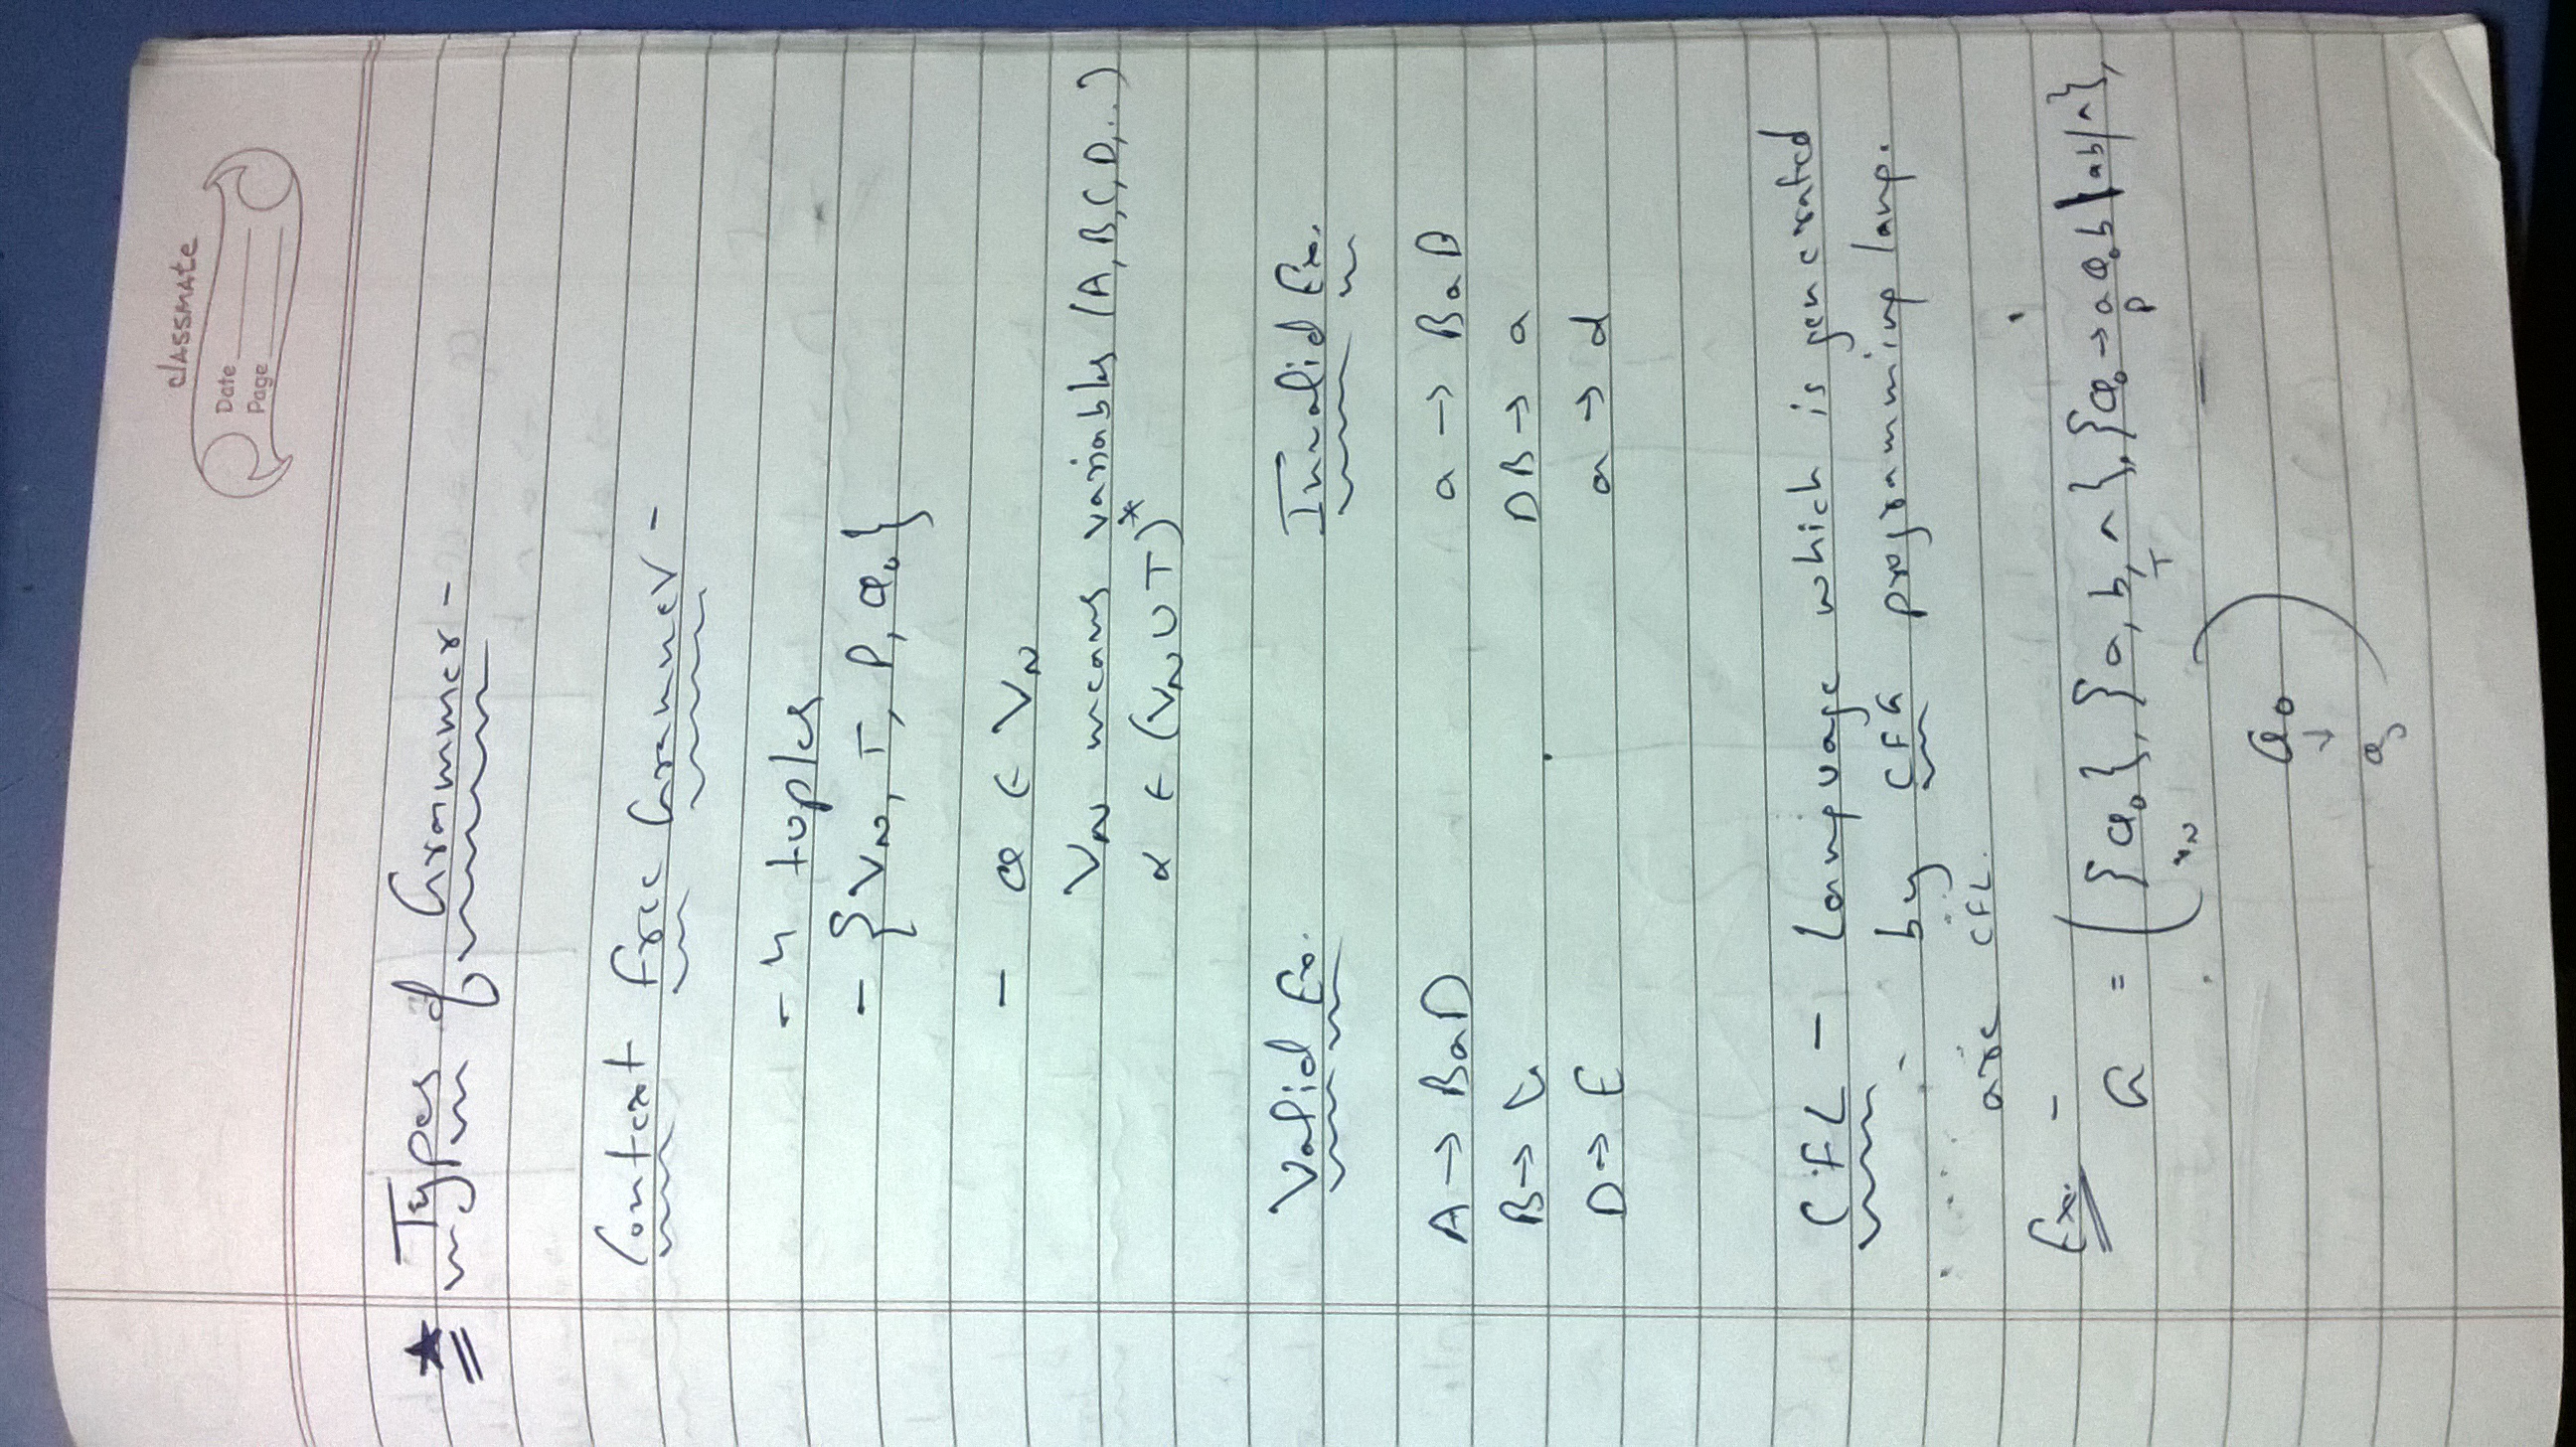 classmate
Date
Page
★ Types of Grammer -
Context Free Grammer -
- 4 tuples
- {VN, T, P, Q0}
- Q ∈ VN
VN means variables (A, B, C, D, ..)
α ∈ (VN ∪ T)*
Valid Ex. Invalid Ex.
A → BaD a → BaB
B → G DB → a
D → E a → d
CFL - Language which is generated
by CFG programming lang.
are CFL.
Ex. -
G = ({Q0}, {a, b, ^}, {Q0 → aQ0b | ab | ^},
VN T P
Q0
↓